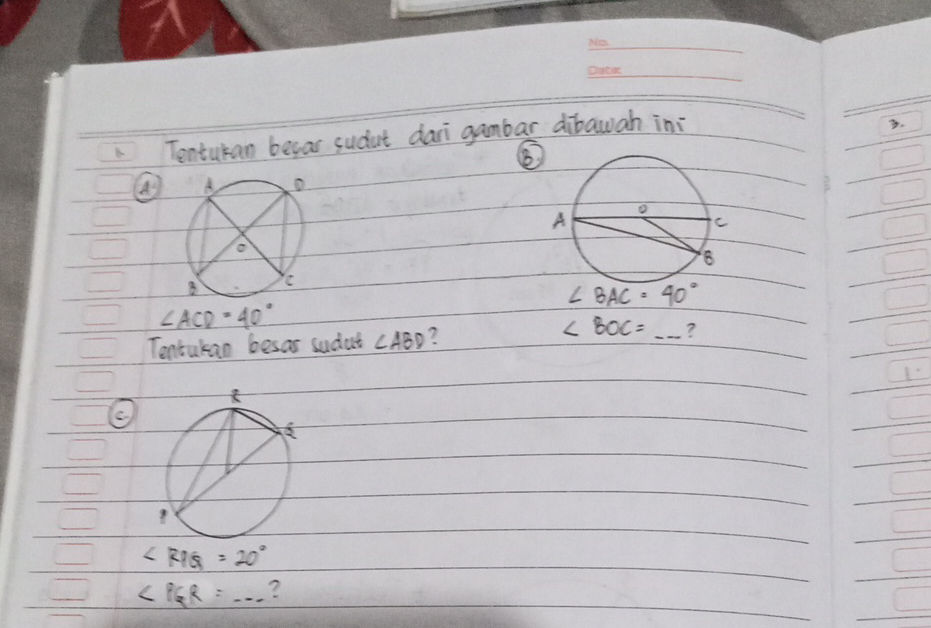 No.
Date:
1. Tentukan besar sudut dari gambar dibawah ini
A.
A
D
O
B
C
∠ACD = 40°
Tentukan besar sudut ∠ABD?
B.
A
O
C
B
∠ BAC = 40°
∠ BOC = ---?
C.
R
Q
P
∠ RPQ = 20°
∠ PQR = ---?
3.
1.